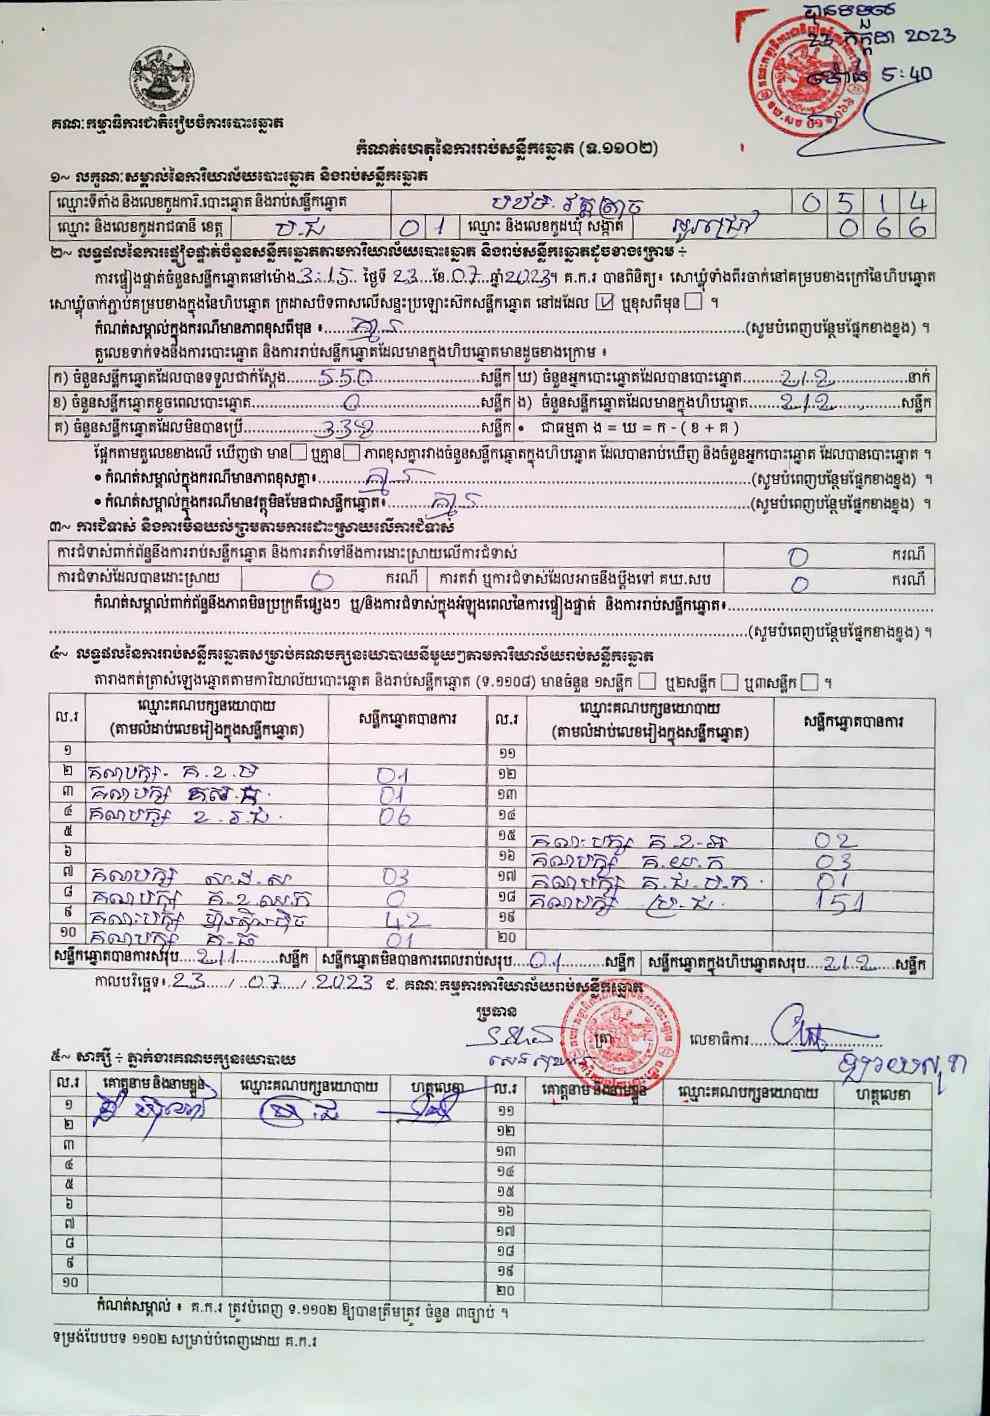 បានទទួល
23 កក្កដា 2023
ម៉ោង 5:40
គណៈកម្មាធិការជាតិរៀបចំការបោះឆ្នោត
កំណត់ហេតុនៃការរាប់សន្លឹកឆ្នោត (ទ.១១០២)
១~ លក្ខណៈសម្គាល់នៃការិយាល័យបោះឆ្នោត និងរាប់សន្លឹកឆ្នោត
ឈ្មោះទីតាំង និងលេខកូដការិ.បោះឆ្នោត និងរាប់សន្លឹកឆ្នោត 0 5 1 4
ឈ្មោះ និងលេខកូដរាជធានី ខេត្ត ប.ជ 0 1 ឈ្មោះ និងលេខកូដឃុំ សង្កាត់ អូរជ្រៅ 0 6 6
២~ លទ្ធផលនៃការផ្ទៀងផ្ទាត់ចំនួនសន្លឹកឆ្នោតតាមការិយាល័យបោះឆ្នោត និងរាប់សន្លឹកឆ្នោតដូចខាងក្រោម ÷
ការផ្ទៀងផ្ទាត់ចំនួនសន្លឹកឆ្នោតនៅម៉ោង 3:15 ថ្ងៃទី 23 ខែ 07 ឆ្នាំ 2023។ គ.ក.រ បានពិនិត្យ៖ សោឃ្លុំទាំងពីរចាក់នៅគម្របខាងក្រៅនៃហិបឆ្នោត
សោឃ្លុំចាក់ភ្ជាប់គម្របខាងក្នុងនៃហិបឆ្នោត ក្រដាសបិទពាសលើសន្ទះប្រឡោះស៊កសន្លឹកឆ្នោត នៅដដែល ☑ ឬខុសពីមុន ☐ ។
កំណត់សម្គាល់ក្នុងករណីមានភាពខុសពីមុន ៖ គ្មាន (សូមបំពេញបន្ថែមផ្នែកខាងខ្នង) ។
តួលេខទាក់ទងនឹងការបោះឆ្នោត និងការរាប់សន្លឹកឆ្នោតដែលមានក្នុងហិបឆ្នោតមានដូចខាងក្រោម ៖
ក) ចំនួនសន្លឹកឆ្នោតដែលបានទទួលជាក់ស្តែង 550 សន្លឹក ឃ) ចំនួនអ្នកបោះឆ្នោតដែលបានបោះឆ្នោត 212 នាក់
ខ) ចំនួនសន្លឹកឆ្នោតខូចពេលបោះឆ្នោត 0 សន្លឹក ង) ចំនួនសន្លឹកឆ្នោតដែលមានក្នុងហិបឆ្នោត 212 សន្លឹក
គ) ចំនួនសន្លឹកឆ្នោតដែលមិនបានប្រើ 338 សន្លឹក • ជាធម្មតា ង = ឃ = ក - ( ខ + គ )
ផ្អែកតាមតួលេខខាងលើ ឃើញថា មាន ☐ ឬគ្មាន ☐ ភាពខុសគ្នារវាងចំនួនសន្លឹកឆ្នោតក្នុងហិបឆ្នោត ដែលបានរាប់ឃើញ និងចំនួនអ្នកបោះឆ្នោត ដែលបានបោះឆ្នោត ។
• កំណត់សម្គាល់ក្នុងករណីមានភាពខុសគ្នា៖ គ្មាន (សូមបំពេញបន្ថែមផ្នែកខាងខ្នង) ។
• កំណត់សម្គាល់ក្នុងករណីមានវត្ថុមិនមែនជាសន្លឹកឆ្នោត៖ គ្មាន (សូមបំពេញបន្ថែមផ្នែកខាងខ្នង) ។
៣~ ការជំទាស់ និងការមិនយល់ព្រមតាមការដោះស្រាយលើការជំទាស់
ការជំទាស់ពាក់ព័ន្ធនឹងការរាប់សន្លឹកឆ្នោត និងការតវ៉ាទៅនឹងការដោះស្រាយលើការជំទាស់ 0 ករណី
ការជំទាស់ដែលបានដោះស្រាយ 0 ករណី ការតវ៉ា ឬការជំទាស់ដែលអាចនឹងប្តឹងទៅ គឃ.សប 0 ករណី
កំណត់សម្គាល់ពាក់ព័ន្ធនឹងភាពមិនប្រក្រតីផ្សេងៗ ឬ/និងការជំទាស់ក្នុងអំឡុងពេលនៃការផ្ទៀងផ្ទាត់ និងការរាប់សន្លឹកឆ្នោត៖
(សូមបំពេញបន្ថែមផ្នែកខាងខ្នង) ។
៤~ លទ្ធផលនៃការរាប់សន្លឹកឆ្នោតសម្រាប់គណបក្សនយោបាយនីមួយៗតាមការិយាល័យរាប់សន្លឹកឆ្នោត
តារាងកត់ត្រាសំឡេងឆ្នោតតាមការិយាល័យបោះឆ្នោត និងរាប់សន្លឹកឆ្នោត (ទ.១១០៨) មានចំនួន ១សន្លឹក ☐ ឬ២សន្លឹក ☐ ឬ៣សន្លឹក ☐ ។
ល.រ ឈ្មោះគណបក្សនយោបាយ (តាមលំដាប់លេខរៀងក្នុងសន្លឹកឆ្នោត) សន្លឹកឆ្នោតបានការ ល.រ ឈ្មោះគណបក្សនយោបាយ (តាមលំដាប់លេខរៀងក្នុងសន្លឹកឆ្នោត) សន្លឹកឆ្នោតបានការ
១ ១១
២ គណបក្ស គ.ខ.ម 01 ១២
៣ គណបក្ស 01 ១៣
៤ គណបក្ស ខ.រ.ជ. 06 ១៤
៥ ១៥ គណៈបក្ស គ.ខ.អ 02
៦ ១៦ គណបក្ស គ.យ.ក 03
៧ គណបក្ស ស.ដ.ស 03 ១៧ គណបក្ស គ.ជ.ប.ក. 01
៨ គណបក្ស 0 ១៨ គណបក្ស ប្រ.ជ. 151
៩ គណៈបក្ស ហ៊្វុនស៊ិនប៉ិច 42 ១៩
១០ គណបក្ស គ.ធ 01 ២០
សន្លឹកឆ្នោតបានការសរុប 211 សន្លឹក សន្លឹកឆ្នោតមិនបានការពេលរាប់សរុប 01 សន្លឹក សន្លឹកឆ្នោតក្នុងហិបឆ្នោតសរុប 212 សន្លឹក
កាលបរិច្ឆេទ៖ 23 / 07 / 2023 ជ. គណៈកម្មការការិយាល័យរាប់សន្លឹកឆ្នោត
ប្រធាន
ត្រា លេខាធិការ
៥~ សាក្សី ÷ ភ្នាក់ងារគណបក្សនយោបាយ
ល.រ គោត្តនាម និងនាមខ្លួន ឈ្មោះគណបក្សនយោបាយ ហត្ថលេខា ល.រ គោត្តនាម និងនាមខ្លួន ឈ្មោះគណបក្សនយោបាយ ហត្ថលេខា
១ ១១
២ ១២
៣ ១៣
៤ ១៤
៥ ១៥
៦ ១៦
៧ ១៧
៨ ១៨
៩ ១៩
១០ ២០
កំណត់សម្គាល់ ៖ គ.ក.រ ត្រូវបំពេញ ទ.១១០២ ឱ្យបានត្រឹមត្រូវ ចំនួន ៣ច្បាប់ ។
ទម្រង់បែបបទ ១១០២ សម្រាប់បំពេញដោយ គ.ក.រ